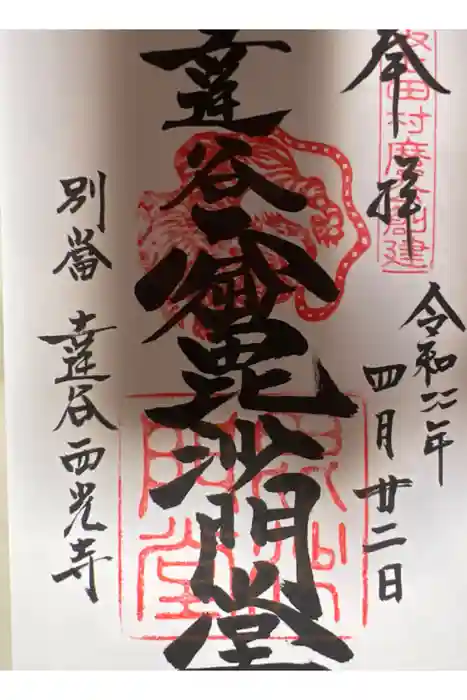 奉拝
坂上田村麿公創建
令和 年
四月廿二日
達谷窟毘沙門堂
毘沙門堂
別當 達谷西光寺